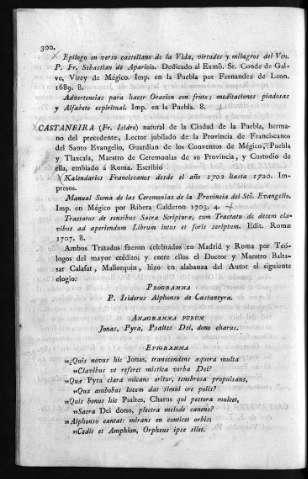 300.
Epílogo en verso castellano de la Vida, virtudes y milagros del Ven.
P. Fr. Sebastian de Aparicio. Dedicado al Exmô. Sr. Conde de Gal-
ve, Virey de Mégico. Imp. en la Puebla por Fernandez de Leon.
1689. 8.
Advertencias para hacer Oracion con frutos; meditaciones piadosas
y Alfabeto espiritual. Imp. en la Puebla. 8.
CASTAÑEIRA (Fr. Isidro) natural de la Ciudad de la Puebla, herma-
no del precedente, Lector jubilado de la Provincia de Franciscanos
del Santo Evangelio, Guardian de los Conventos de Mégico, Puebla
y Tlaxcala, Maestro de Ceremonias de su Provincia, y Custodio de
ella, embiado á Roma. Escribió
Kalendarios Franciscanos desde el año 1702 hasta 1720. Im-
presos.
Manual Suma de las Ceremonias de la Provincia del Sto. Evangelio.
Imp. en Mégico por Ribera Calderon 1703. 4.
Tractatus de sensibus Sacra Scriptura, cum Tractatu de decem cla-
vibus ad aperiendum Librum intus et foris scriptum. Edit. Roma
1707. 8.
Ambos Tratados fueron celebrados en Madrid y Roma por Teó-
logos del mayor crédito; y entre ellos el Doctor y Maestro Balta-
sar Calafat, Mallorquin, hizo en alabanza del Autor el siguiente
elogio:
PROGRAMMA
P. Isidorus Alphonso de Castaneyra.
ANAGRAMMA PURUM
Jonas, Pyra, Psaltes Dei, dono charus.
EPIGRAMMA
»Quis novus hic Jonas, transcendens aquora multa
»Clavibus ut referet mistica verba Dei?
»Qua Pyra clara micans oritur, tenebrosa propulsans,
»Qua ambobus lucem dat simul ore polis?
»Quis bonus hic Psaltes, Charus qui pectora mulcet,
»Sacra Dei dono, plectra melode canens?
»Alphonso cantat: mirans en comices orbis
»Cedit et Amphion, Orpheus ipse silet.